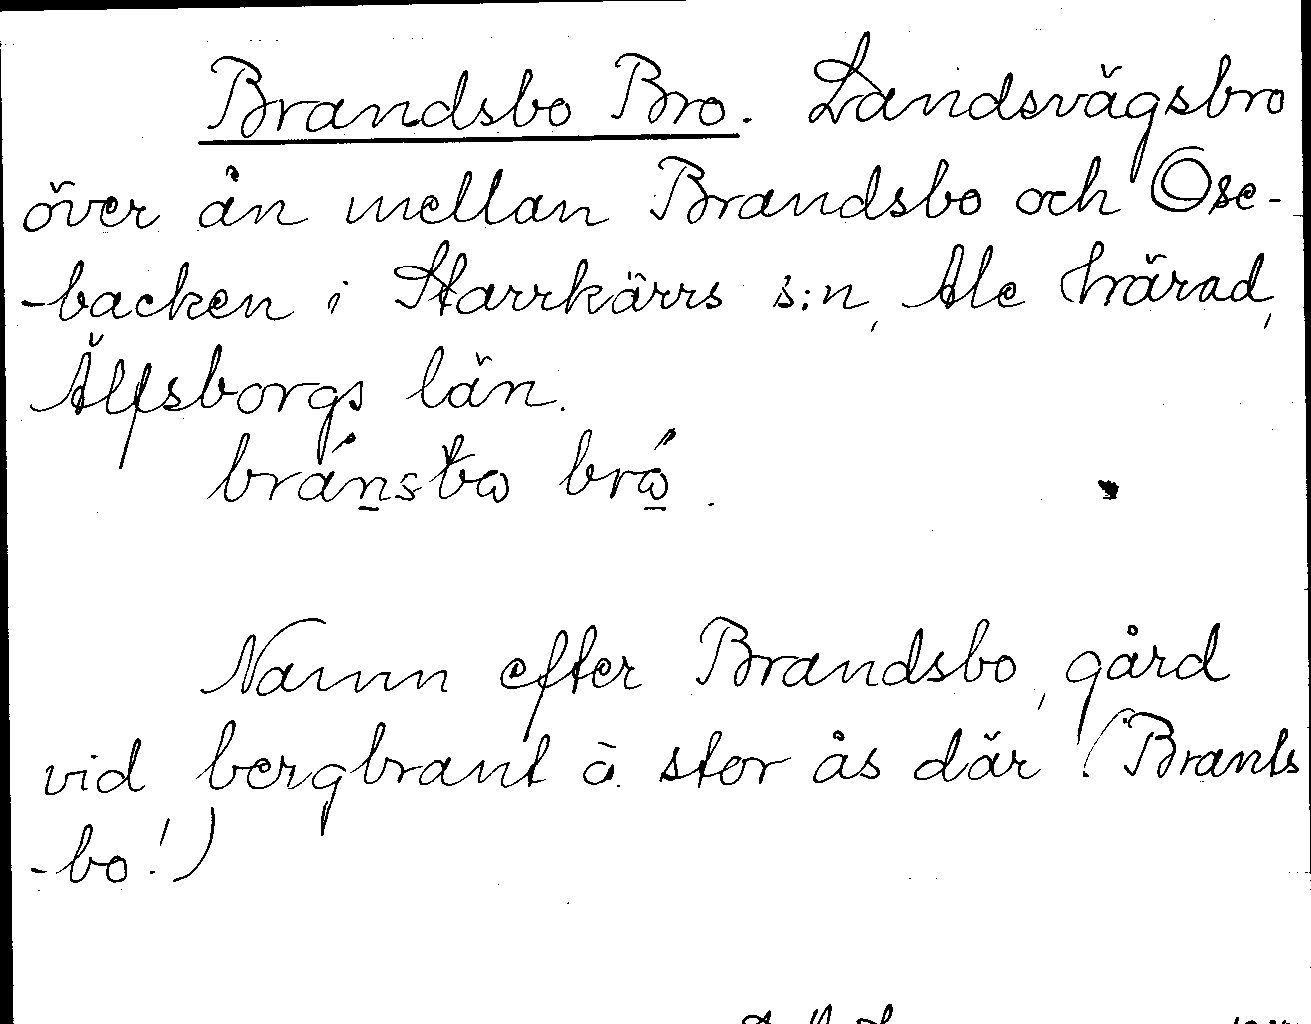 Brandsbo Bro. Landsvägsbro
över ån mellan Brandsbo och Ose-
-backen i Starrkärrs s:n, Ale härad,
Älfsborgs län.
Namn efter Brandsbo, gård
vid bergbrant å stor ås där (Brants
-bo!)